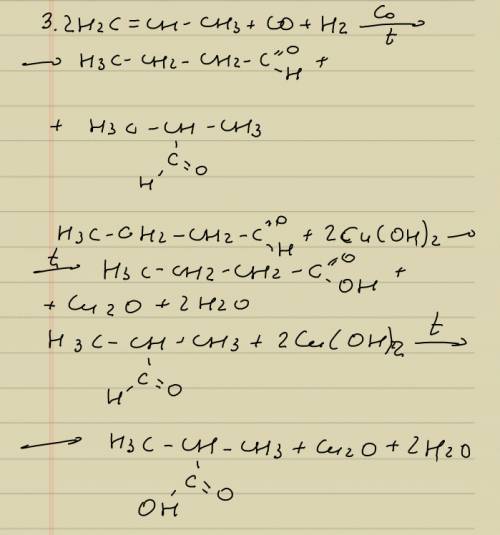 3. 2H2C = CH - CH3 + CO + H2 Co t →
→ H3C - CH2 - CH2 - C =O H +
+ H3C - CH - CH3
C = O
H
H3C - CH2 - CH2 - C =O H + 2Cu(OH)2 →
t → H3C - CH2 - CH2 - C =O OH +
+ Cu2O + 2H2O
H3C - CH - CH3 + 2Cu(OH)2 t →
C = O
H
→ H3C - CH - CH3 + Cu2O + 2H2O
C = O
OH